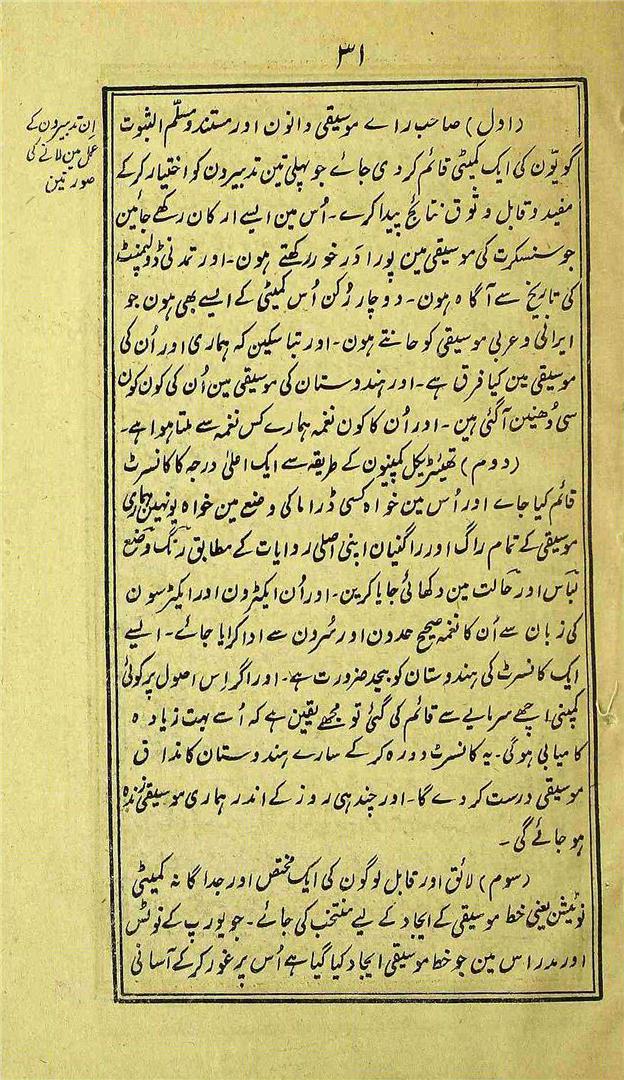 ۳۱
ان تدبیرون کے
عمل مین لانے کی
صورتین
(اول) صاحب راے موسیقی دانون اور مستند و مسلّم الثبوت
گویّون کی ایک کمیٹی قائم کر دی جائے جو پہلی تین تدبیرون کو اختیار کر کے
مفید و قابل وثوق نتائج پیدا کرے۔ اُس مین ایسے ارکان رکھے جائین
جو سنسکرت کی موسیقی مین پورا درخور رکھتے ہون۔ اور تمدنی ڈولپمنٹ
کی تاریخ سے آگاہ ہون۔ دو چار رُکن اُس کمیٹی کے ایسے بھی ہون جو
ایرانی و عربی موسیقی کو جانتے ہون۔ اور بتا سکین کہ ہماری اور اُن کی
موسیقی مین کیا فرق ہے۔ اور ہندوستان کی موسیقی مین اُن کی کون کون
سی دُھنین آگئی ہین۔ اور اُن کا کون نغمہ ہمارے کس نغمہ سے ملتا ہوا ہے۔
(دوم) تھیئٹریکل کمپنیون کے طریقہ سے ایک اعلیٰ درجہ کا کانسرٹ
قائم کیا جاے اور اُس مین خواہ کسی ڈراما کی وضع مین خواہ یونہین ہماری
موسیقی کے تمام راگ اور راگنیان اپنی اصلی روایات کے مطابق رنگ وَضع
لباس اور حالت مین دکھائی جایا کرین۔ اور اُن ایکٹرون اور ایکٹرسون
کی زبان سے اُن کا نغمہ صحیح حدون اور سُرون سے ادا کرایا جائے۔ ایسے
ایک کانسرٹ کی ہندوستان کو بیحد ضرورت ہے۔ اور اگر اِس اصول پر کوئی
کمپنی اچھے سرمایے سے قائم کی گئی تو مجھے یقین ہے کہ اُسے بہت زیادہ
کامیابی ہوگی۔ یہ کانسرٹ دورہ کر کے سارے ہندوستان کا مذاق
موسیقی درست کر دے گا۔ اور چند ہی روز کے اندر ہماری موسیقی زندہ
ہو جائے گی۔
(سوم) لائق اور قابل لوگون کی ایک مختص اور جداگانہ کمیٹی
نوٹیشن یعنی خط موسیقی کے ایجاد کے لیے منتخب کی جائے۔ جو یورپ کے نوٹس
اور مدراس مین جو خط موسیقی ایجاد کیا گیا ہے اُس پر غور کر کے آسانی